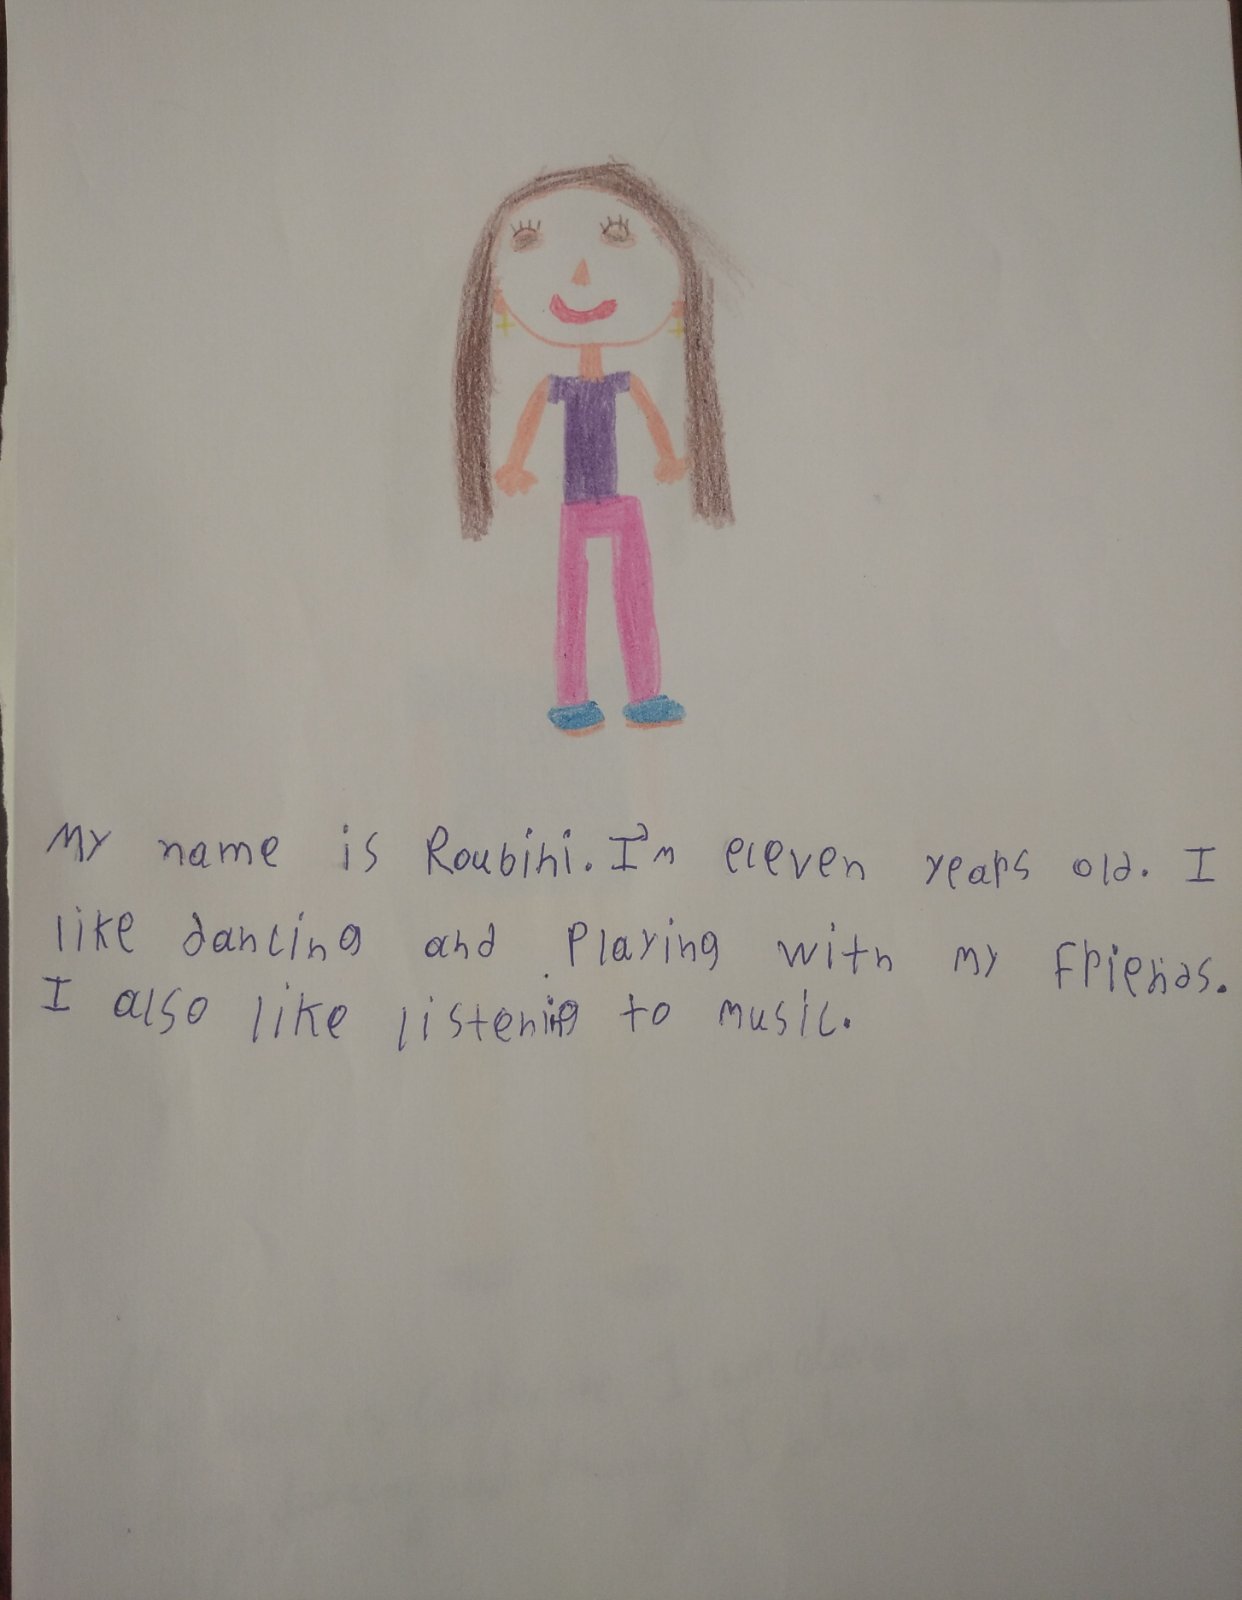 My name is Roubini. I'm eleven years old. I
like dancing and playing with my friends.
I also like listening to music.